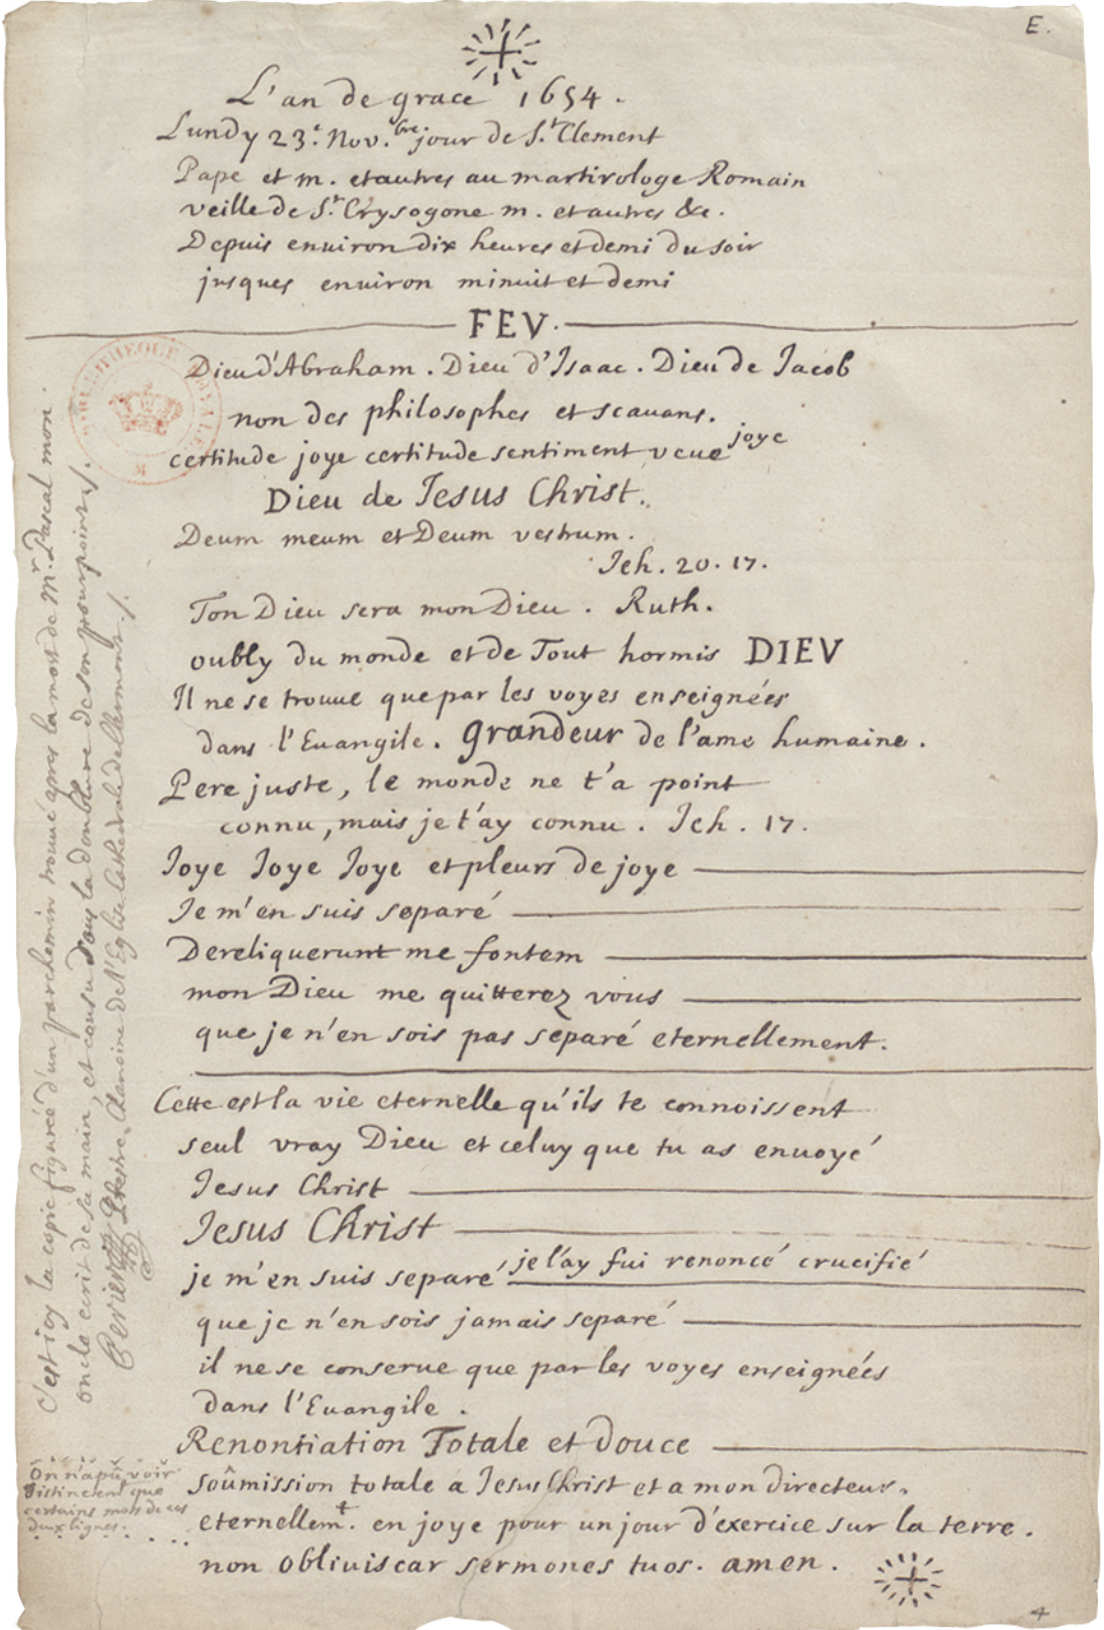 E.
L'an de grace 1654.
Lundy 23.e Nov.bre jour de S.t Clement
Pape et m. et autres au martirologe Romain
veille de S.t Crysogone m. et autres &c.
Depuis enuiron dix heures et demi du soir
jusques enuiron minuit et demi
FEV.
Dieu d'Abraham. Dieu d'Isaac. Dieu de Jacob
non des philosophes et scauans.
certitude joye certitude sentiment veue joye
Dieu de Jesus Christ.
Deum meum et Deum vestrum.
Jeh. 20. 17.
Ton Dieu sera mon Dieu. Ruth.
oubly du monde et de Tout hormis DIEV
Il ne se trouue que par les voyes enseignées
dans l'Euangile. grandeur de l'ame humaine.
Pere juste, le monde ne t'a point
connu, mais je t'ay connu. Jeh. 17.
Joye Joye Joye et pleurs de joye
Je m'en suis separé
Dereliquerunt me fontem
mon Dieu me quitterez vous
que je n'en sois pas separé eternellement.
Cette est la vie eternelle qu'ils te connoissent
seul vray Dieu et celuy que tu as enuoyé
Jesus Christ
Jesus Christ
je m'en suis separé je l'ay fui renoncé crucifié
que je n'en sois jamais separé
il ne se conserue que par les voyes enseignées
dans l'Euangile.
Renontiation Totale et douce
soûmission totale a Jesus Christ et a mon directeur.
eternellem.t en joye pour un jour d'exercice sur la terre.
non obliuiscar sermones tuos. amen.
4
C'est icy la copie figurée d'un parchemin trouué apres la mort de Mr. Pascal mon
oncle ecrit de sa main, et cousu dans la doublure de son pourpoint.
Perier Prestre, Chanoine de l'Eglise Cathedrale de Clermont.
On n'a pû voir
distinctem.t que
certains mots de ces
deux lignes.